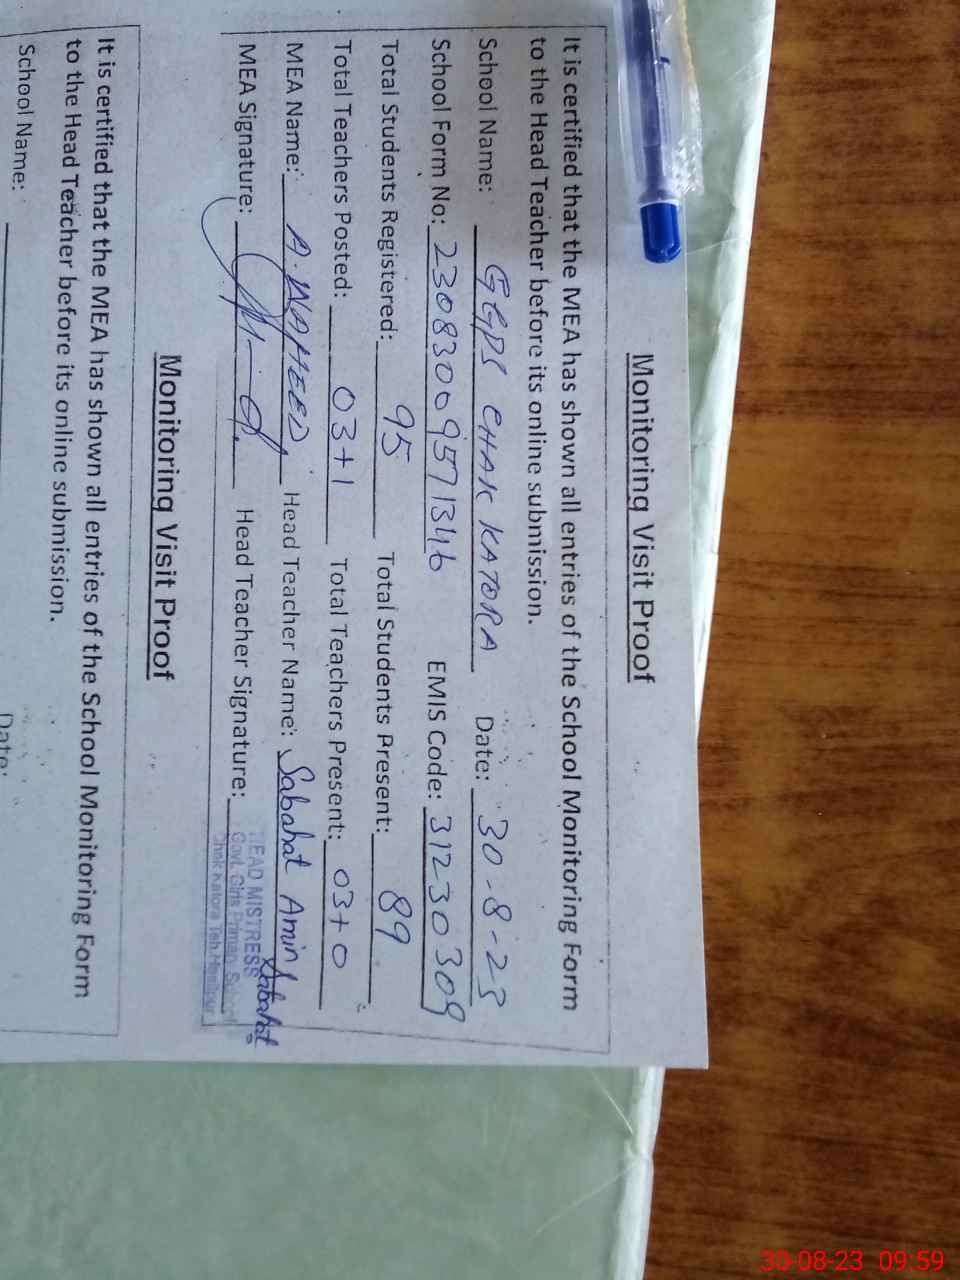 Monitoring Visit Proof
It is certified that the MEA has shown all entries of the School Monitoring Form
to the Head Teacher before its online submission.
School Name: GGPS CHAK KATORA Date: 30-8-23
School Form No: 23083009571346 EMIS Code: 31230309
Total Students Registered: 95 Total Students Present: 89
Total Teachers Posted: 03+1 Total Teachers Present: 03+0
MEA Name: A.WAHEED Head Teacher Name: Sabahat Amin
MEA Signature: Head Teacher Signature: Sabahat
HEAD MISTRESS
Govt. Girls Primary School
Chak Katora Teh.Hasilpur
Monitoring Visit Proof
It is certified that the MEA has shown all entries of the School Monitoring Form
to the Head Teacher before its online submission.
School Name: Date:
30-08-23 09:59